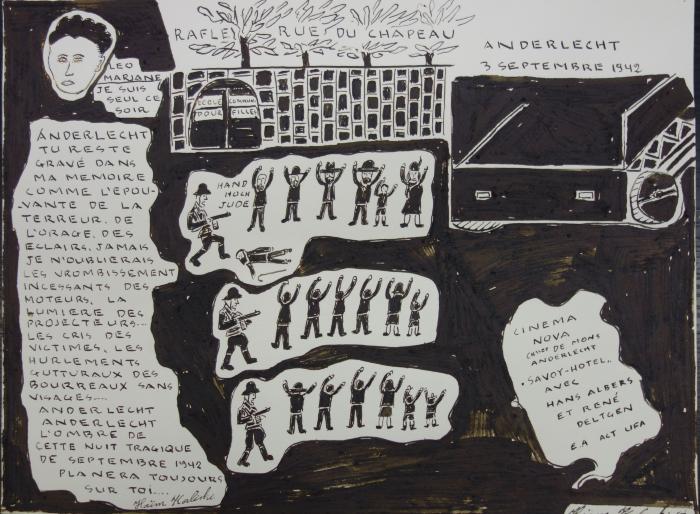 RAFLE, RUE DU CHAPEAU
ANDERLECHT
3 SEPTEMBRE 1942
LEO
MARIANE
JE SUIS
SEUL CE
SOIR
ECOLE COMMUN
POUR FILLES
ANDERLECHT
TU RESTE
GRAVÉ DANS
MA MEMOIRE
COMME L'EPOU-
-VANTE DE LA
TERREUR. DE
L'ORAGE. DES
ECLAIRS. JAMAIS
JE N'OUBLIERAIS
LES VROMBISSEMENT
INCESSANTS DES
MOTEURS. LA
LUMIERE DES
PROJECTEURS...
LES CRIS DES
VICTIMES. LES
HURLEMENTS
GUTTURAUX DES
BOURREAUX SANS
VISAGES....
ANDERLECHT
ANDERLECHT
L'OMBRE DE
CETTE NUIT TRAGIQUE
DE SEPTEMBRE 1942
PLANERA TOUJOURS
SUR TOI....
HAND
HOCH
JUDE
CINEMA
NOVA
CHSEE DE MONS
ANDERLECHT
"SAVOY-HOTEL"
AVEC
HANS ALBERS
ET RENÉ
DELTGEN
E.A ACT UFA